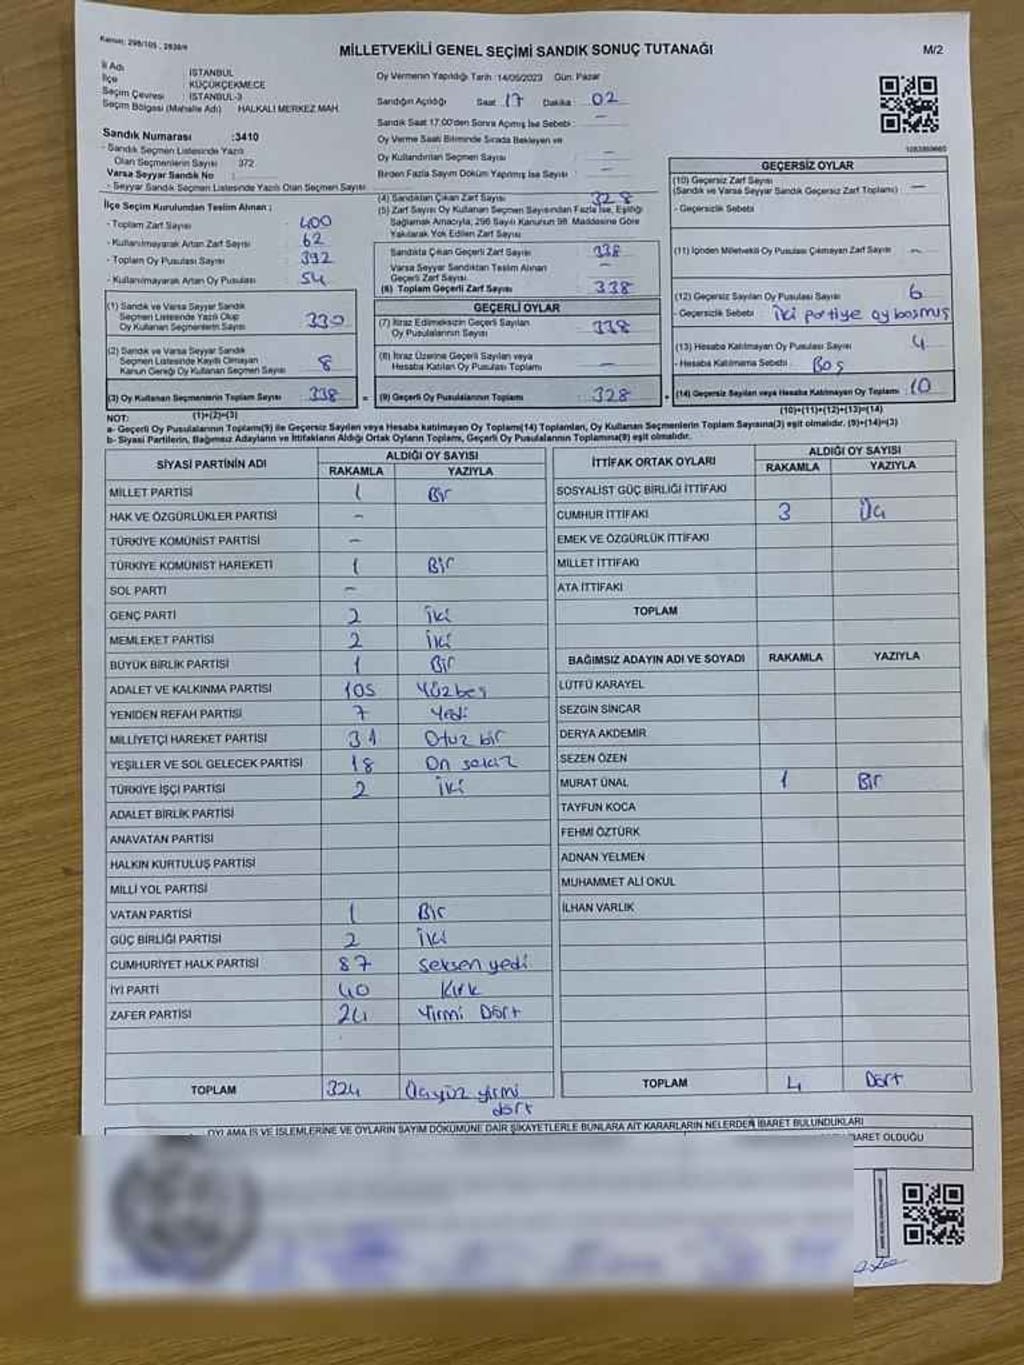 Kanun: 298/105, 2839/
MİLLETVEKİLİ GENEL SEÇİMİ SANDIK SONUÇ TUTANAĞI
M/2
İl Adı : İSTANBUL
İlçe : KÜÇÜKÇEKMECE
Seçim Çevresi : İSTANBUL-3
Seçim Bölgesi (Mahalle Adı) HALKALI MERKEZ MAH.
Sandık Numarası :3410
- Sandık Seçmen Listesinde Yazılı
Olan Seçmenlerin Sayısı 372
Varsa Seyyar Sandık No :
- Seyyar Sandık Seçmen Listesinde Yazılı Olan Seçmen Sayısı :
İlçe Seçim Kurulundan Teslim Alınan ;
- Toplam Zarf Sayısı : 400
- Kullanılmayarak Artan Zarf Sayısı : 62
- Toplam Oy Pusulası Sayısı : 392
- Kullanılmayarak Artan Oy Pusulası : 54
(1) Sandık ve Varsa Seyyar Sandık
Seçmen Listesinde Yazılı Olup
Oy Kullanan Seçmenlerin Sayısı 330
(2) Sandık ve Varsa Seyyar Sandık
Seçmen Listesinde Kayıtlı Olmayan
Kanun Gereği Oy Kullanan Seçmen Sayısı 8
(3) Oy Kullanan Seçmenlerin Toplam Sayısı 338
(1)+(2)=(3)
Oy Vermenin Yapıldığı Tarih :14/05/2023 Gün: Pazar
Sandığın Açıldığı Saat : 17 Dakika : 02
Sandık Saat 17:00'den Sonra Açılmış İse Sebebi : —
Oy Verme Saati Bitiminde Sırada Bekleyen ve
Oy Kullandırılan Seçmen Sayısı : —
Birden Fazla Sayım Döküm Yapılmış İse Sayısı : —
(4) Sandıktan Çıkan Zarf Sayısı : 328
(5) Zarf Sayısı Oy Kullanan Seçmen Sayısından Fazla İse, Eşitliği
Sağlamak Amacıyla, 298 Sayılı Kanunun 98. Maddesine Göre
Yakılarak Yok Edilen Zarf Sayısı :
Sandıkta Çıkan Geçerli Zarf Sayısı : 338
Varsa Seyyar Sandıktan Teslim Alınan
Geçerli Zarf Sayısı : —
(6) Toplam Geçerli Zarf Sayısı : 338
GEÇERLİ OYLAR
(7) İtiraz Edilmeksizin Geçerli Sayılan
Oy Pusulasının Sayısı : 338
(8) İtiraz Üzerine Geçerli Sayılan veya
Hesaba Katılan Oy Pusulası Toplamı : —
= (9) Geçerli Oy Pusulalarının Toplamı : 328 +
1083869660
GEÇERSİZ OYLAR
(10) Geçersiz Zarf Sayısı
(Sandık ve Varsa Seyyar Sandık Geçersiz Zarf Toplamı) : —
- Geçersizlik Sebebi :
(11) İçinden Milletvekili Oy Pusulası Çıkmayan Zarf Sayısı : —
(12) Geçersiz Sayılan Oy Pusulası Sayısı : 6
- Geçersizlik Sebebi : iki partiye oy basmış
(13) Hesaba Katılmayan Oy Pusulası Sayısı : 4
- Hesaba Katılmama Sebebi : Boş
(14) Geçersiz Sayılan veya Hesaba Katılmayan Oy Toplamı : 10
(10)+(11)+(12)+(13)=(14)
NOT:
a- Geçerli Oy Pusulalarının Toplamı(9) ile Geçersiz Sayılan veya Hesaba katılmayan Oy Toplamı(14) Toplamları, Oy Kullanan Seçmenlerin Toplam Sayısına(3) eşit olmalıdır. (9)+(14)=(3)
b- Siyasi Partilerin, Bağımsız Adayların ve İttifakların Aldığı Ortak Oyların Toplamı, Geçerli Oy Pusulalarının Toplamına(9) eşit olmalıdır.
SİYASİ PARTİNİN ADI ALDIĞI OY SAYISI
RAKAMLA YAZIYLA
MİLLET PARTİSİ 1 Bir
HAK VE ÖZGÜRLÜKLER PARTİSİ —
TÜRKİYE KOMÜNİST PARTİSİ —
TÜRKİYE KOMÜNİST HAREKETİ 1 Bir
SOL PARTİ —
GENÇ PARTİ 2 İki
MEMLEKET PARTİSİ 2 İki
BÜYÜK BİRLİK PARTİSİ 1 Bir
ADALET VE KALKINMA PARTİSİ 105 Yüzbeş
YENİDEN REFAH PARTİSİ 7 Yedi
MİLLİYETÇİ HAREKET PARTİSİ 31 Otuz bir
YEŞİLLER VE SOL GELECEK PARTİSİ 18 On sekiz
TÜRKİYE İŞÇİ PARTİSİ 2 İki
ADALET BİRLİK PARTİSİ
ANAVATAN PARTİSİ
HALKIN KURTULUŞ PARTİSİ
MİLLİ YOL PARTİSİ
VATAN PARTİSİ 1 Bir
GÜÇ BİRLİĞİ PARTİSİ 2 İki
CUMHURİYET HALK PARTİSİ 87 Seksen yedi
İYİ PARTİ 40 Kırk
ZAFER PARTİSİ 24 Yirmi Dört
TOPLAM 324 Üçyüz yirmi
dört
İTTİFAK ORTAK OYLARI ALDIĞI OY SAYISI
RAKAMLA YAZIYLA
SOSYALİST GÜÇ BİRLİĞİ İTTİFAKI
CUMHUR İTTİFAKI 3 Üç
EMEK VE ÖZGÜRLÜK İTTİFAKI
MİLLET İTTİFAKI
ATA İTTİFAKI
TOPLAM
BAĞIMSIZ ADAYIN ADI VE SOYADI RAKAMLA YAZIYLA
LÜTFÜ KARAYEL
SEZGİN SİNCAR
DERYA AKDEMİR
SEZEN ÖZEN
MURAT ÜNAL 1 Bir
TAYFUN KOCA
FEHMİ ÖZTÜRK
ADNAN YELMEN
MUHAMMET ALİ OKUL
İLHAN VARLIK
TOPLAM 4 Dört
OYLAMA İŞ VE İŞLEMLERİNE VE OYLARIN SAYIM DÖKÜMÜNE DAİR ŞİKAYETLERLE BUNLARA AİT KARARLARIN NELERDEN İBARET BULUNDUKLARI
BARET OLDUĞU